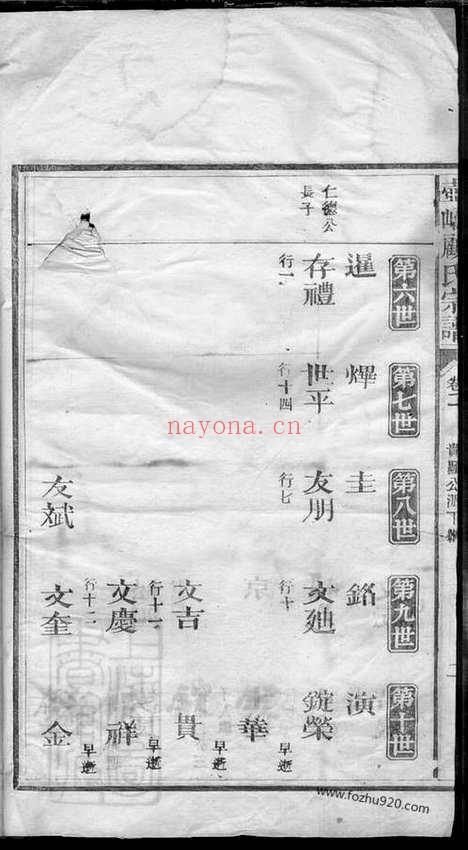 氏宗譜
卷二
第六世
第七世
第八世
第九世
第十世
暹
燁
圭
銘
演
仁德公
長子
存禮
世平
友朋
文迪
錠榮
行一
行十四
行七
行十
早逝
華
文吉
貴
早逝
行十一
早逝
文慶
祥
行十二
早逝
友斌
文奎
金
nayona.cn
www.fozhu920.com